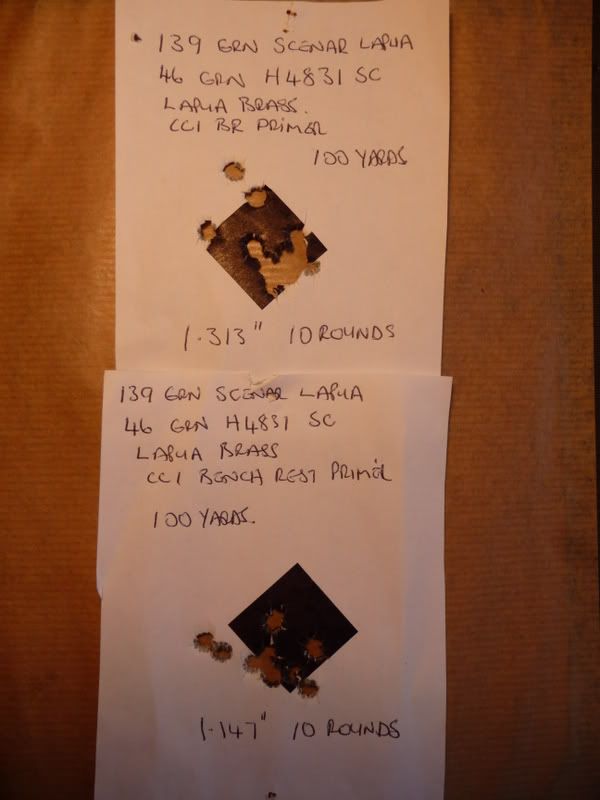 139 GRN SCENAR LAPUA
46 GRN H4831 SC
LAPUA BRASS.
CCI BR PRIMER
100 YARDS
1.313" 10 ROUNDS
139 GRN SCENAR LAPUA
46 GRN H4831 SC
LAPUA BRASS
CCI BENCH REST PRIMER
100 YARDS.
1.147" 10 ROUNDS